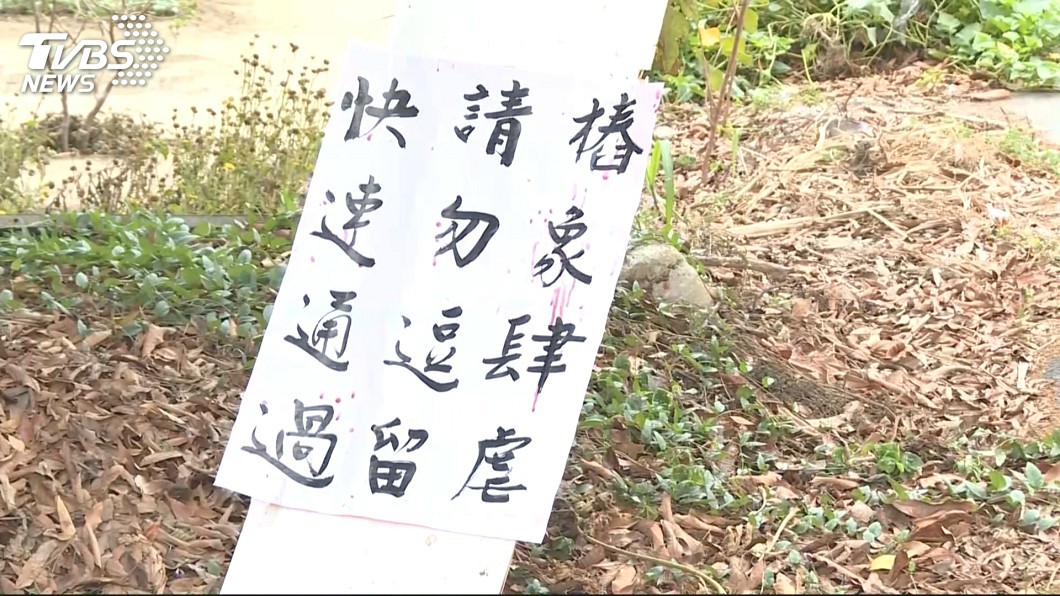 TVBS
NEWS
樁象肆虐
請勿逗留
快速通過